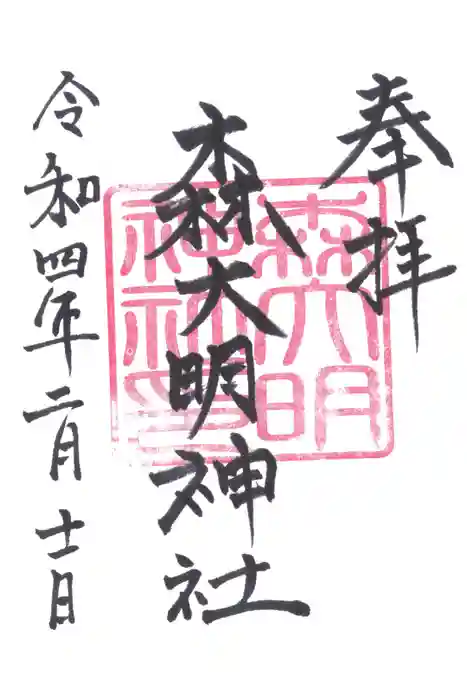 奉拝
森大明神社
令和四年二月十一日
森大明
神社印